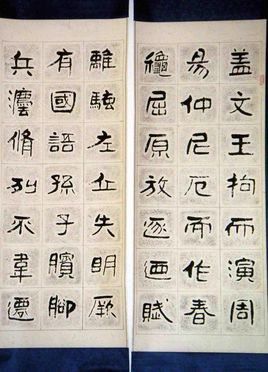 盖文王拘而演周
易仲尼厄而作春
龝屈原放逐迺賦
離騷左丘失明厥
有國語孫子臏腳
兵灋脩列不韋遷